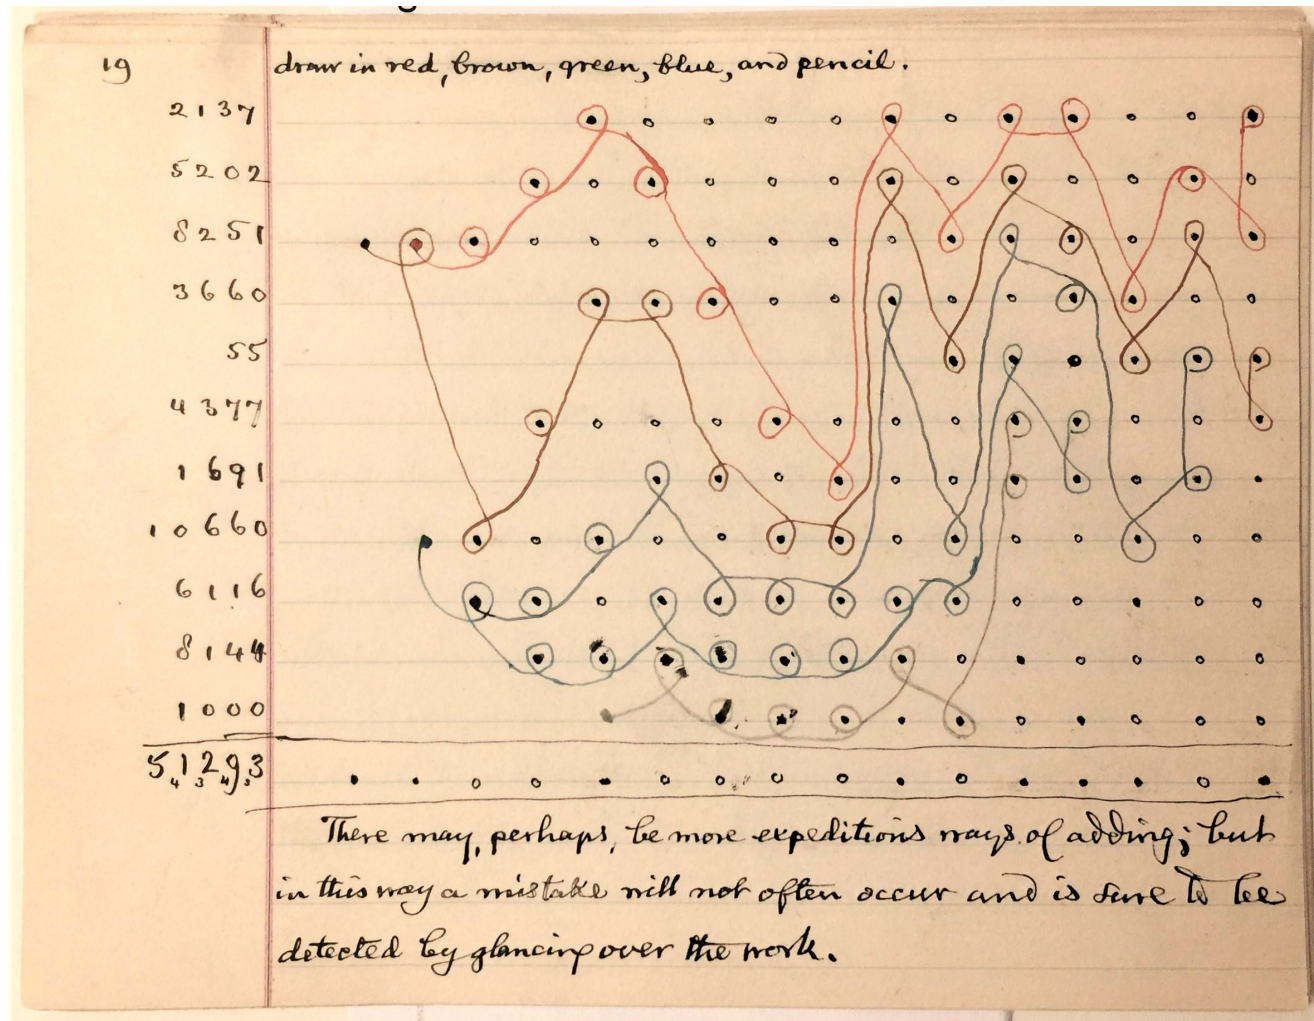 19
draw in red, brown, green, blue, and pencil.
2137
5202
8251
3660
55
4377
1691
10660
6116
8144
1000
51293
There may, perhaps, be more expeditious ways of adding; but
in this way a mistake will not often occur and is sure to be
detected by glancing over the work.